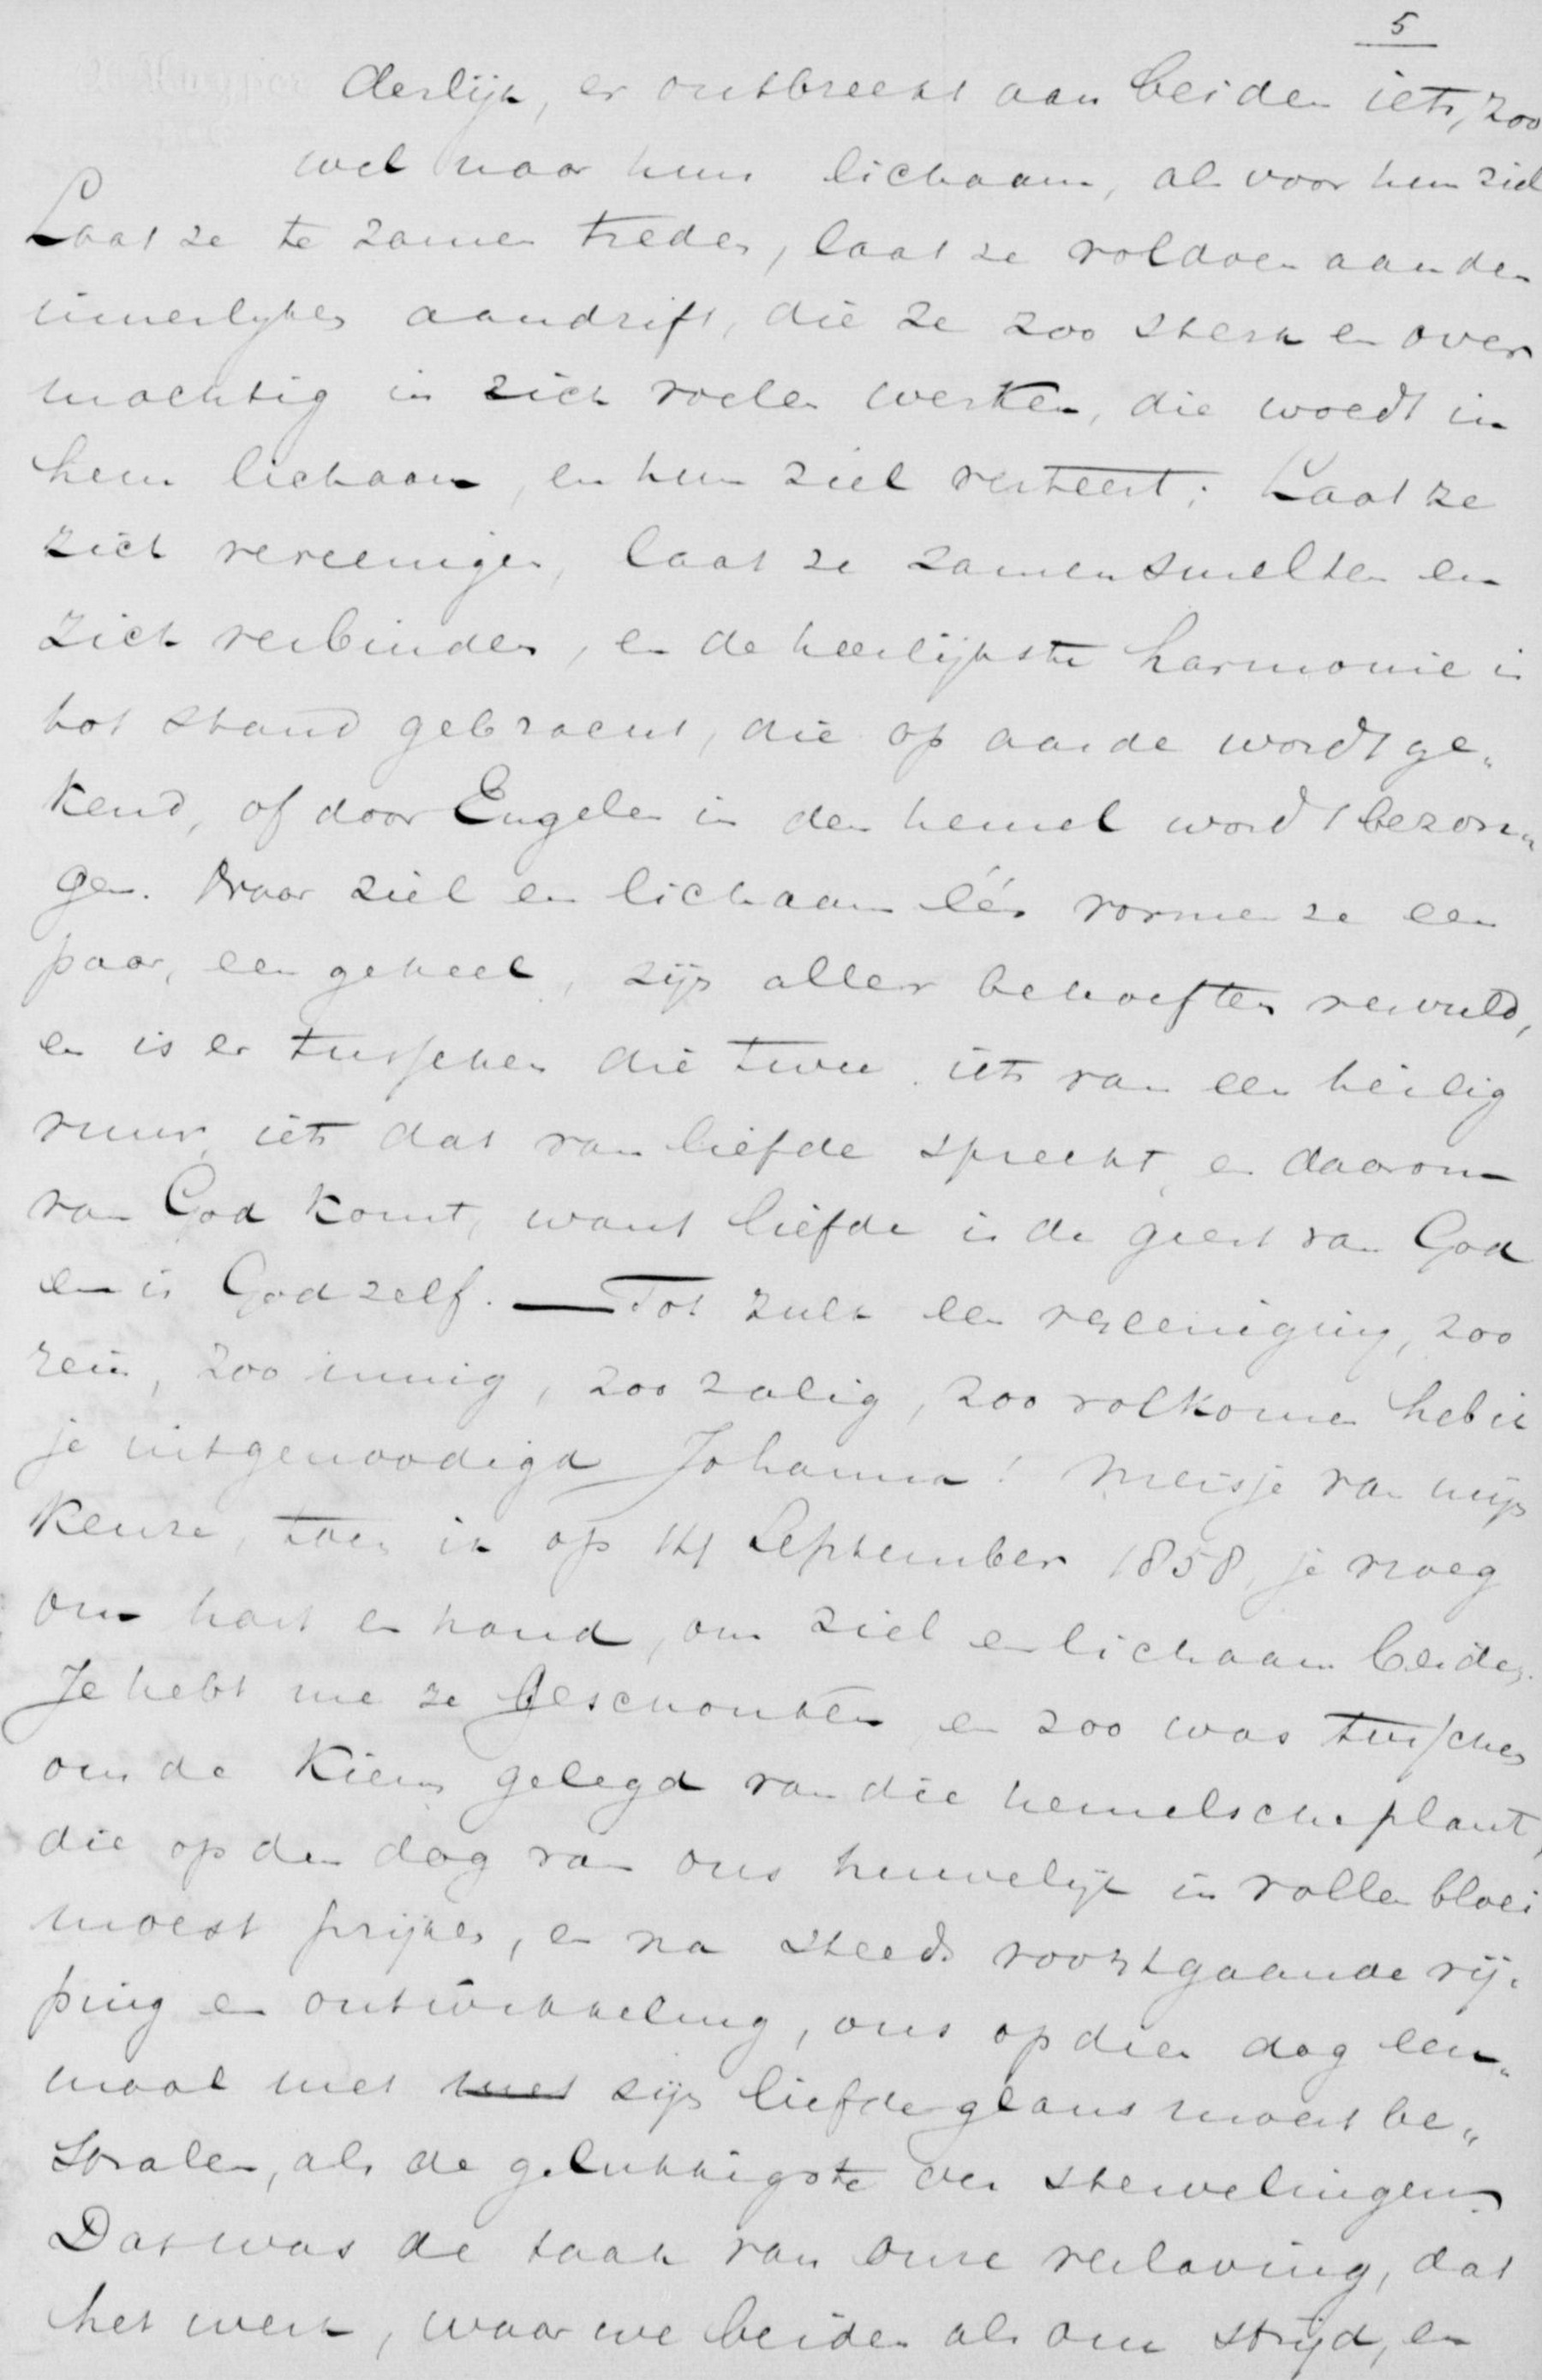 5
derlijk, er ontbreekt aan beiden iets, zoo
wel naar hun lichaam, als voor hun ziel
Laat ze te zamen treden, laat ze voldoen aan den
innerlijken aandrift, die ze zoo sterk en over
machtig in zich voelen werken, die woedt in
hun lichaam, en hun ziel verteert; Laat ze
zich vereenigen, laat ze zamensmelten en
zich verbinden, en de heerlijkste harmonie is
tot stand gebracht, die op aarde wordt ge„
kend, of door Engelen in den hemel wordt bezon„
gen. Naar ziel en lichaam één vormen ze een
paar, een geheel, zijn aller behoeften vervuld,
en is er tusschen die twee iets van een heilig
vuur, iets dat van liefde spreekt, en daarom
van God komt, want liefde is de geest van God
en is God zelf. — Tot zulk een vereeniging, zoo
rein, zoo innig, zoo zalig, zoo volkomen heb ik
je uitgenoodigd Johanna! Meisje van mijn
keuze, toen ik op 14 September 1858, je vroeg
om hart en hand, om ziel en lichaam beiden.
Je hebt me ze geschonken en zoo was tusschen
ons de kiem gelegd van die hemelsche plant,
die op den dag van ons huwelijk in vollen bloei
moest prijken, en na steeds voortgaande rij„
ping en ontwikkeling, ons op dien dag een„
maal met met zijn liefdeglans moest be„
stralen, als de gelukkigste der stervelingen.
Dat was de taak van onze verloving, dat
het werk, waar we beiden als om strijd, en